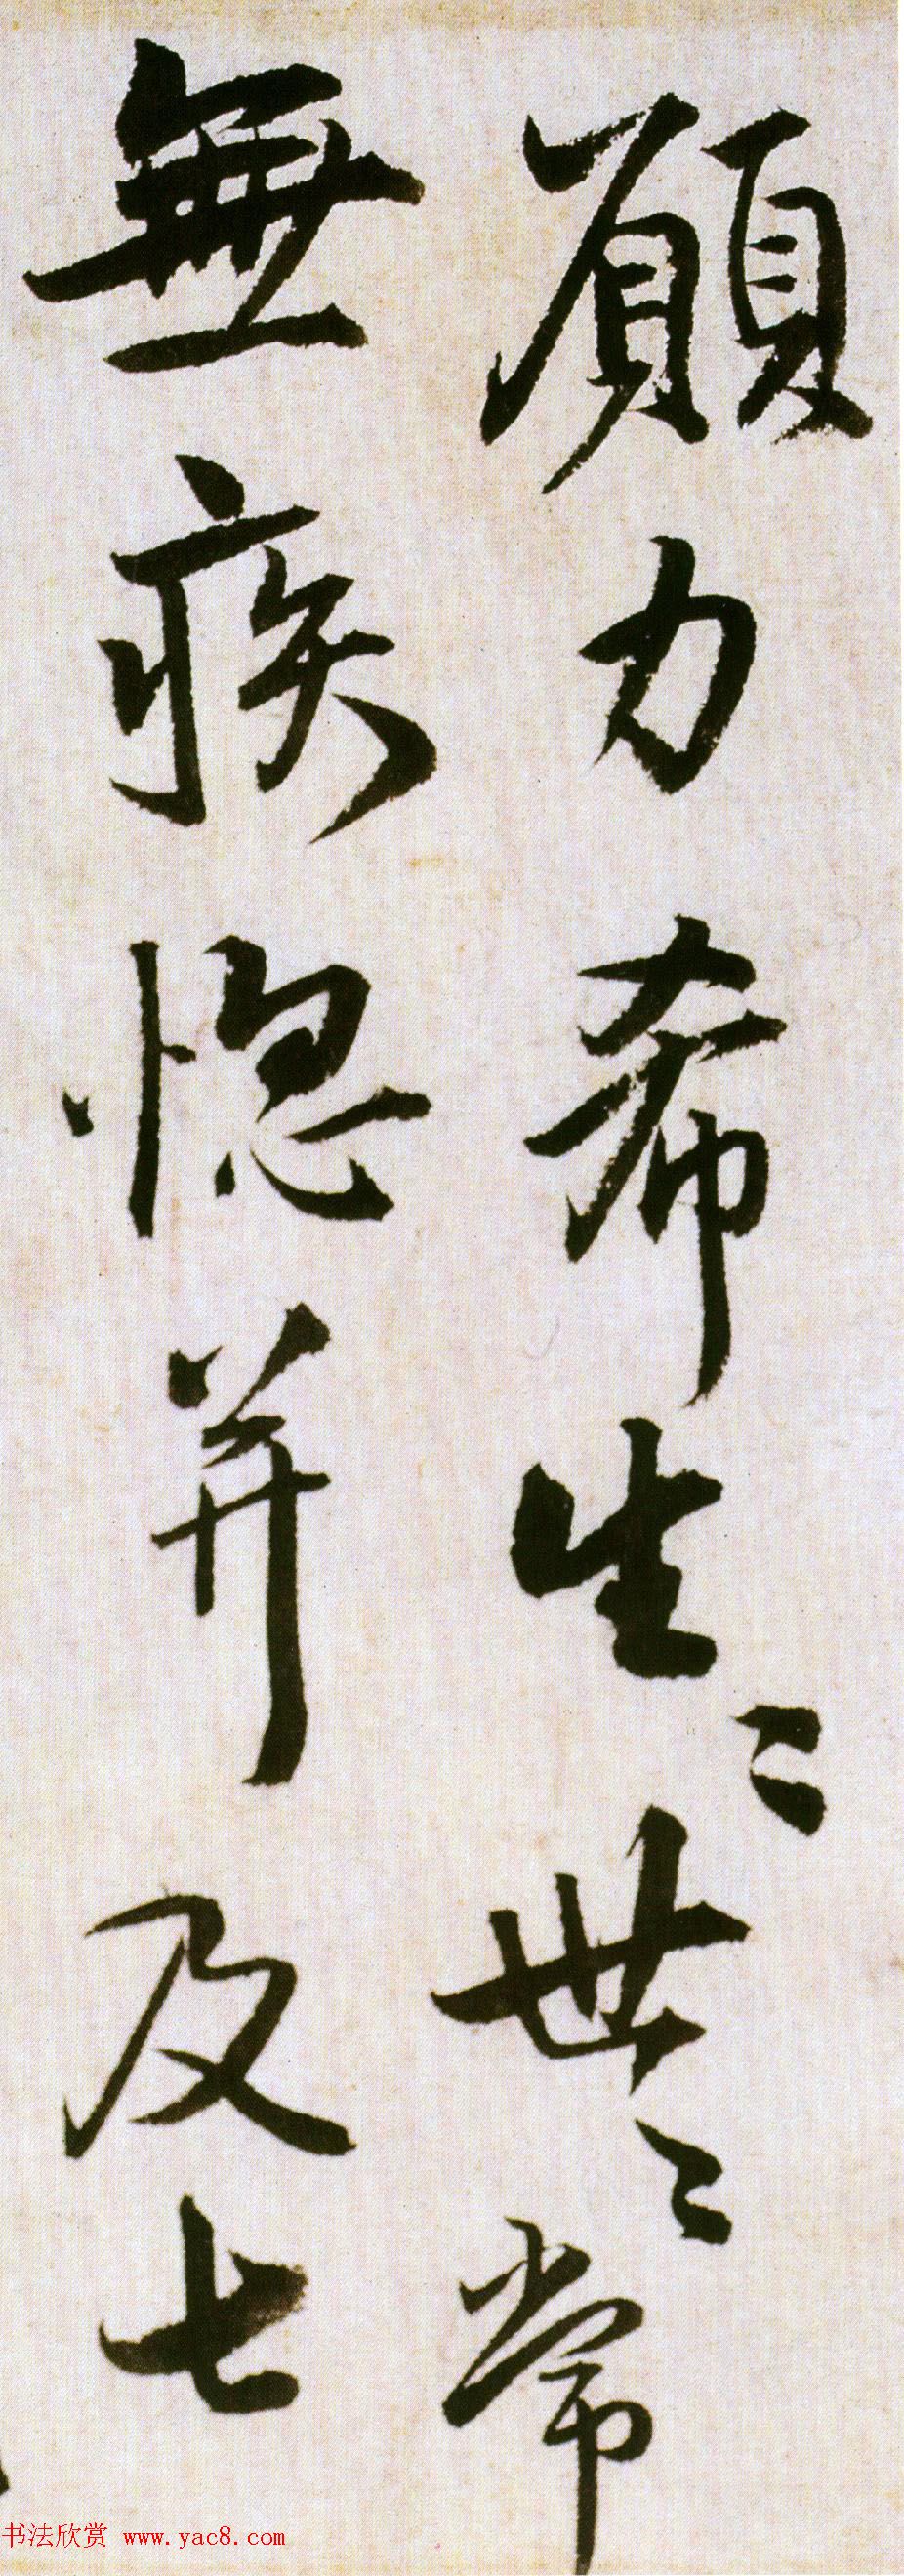 願力希生〻世〻常
無疾惱并及七
书法欣赏 www.yac8.com